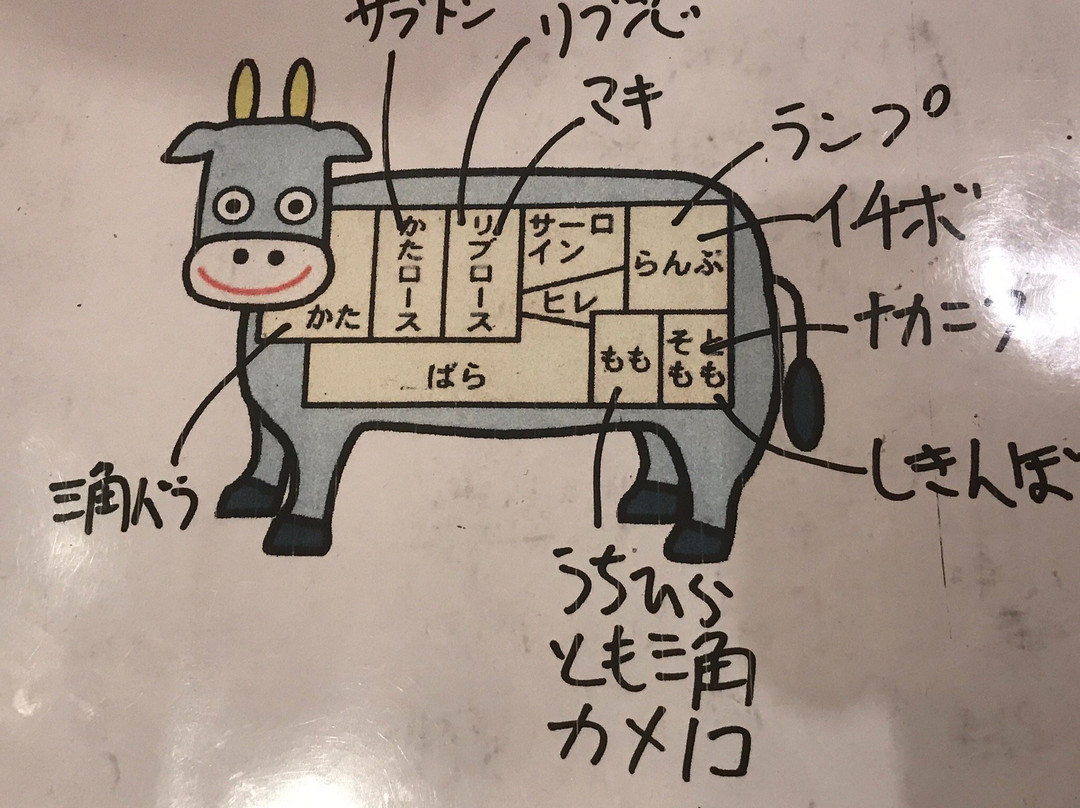 ザブトン
リブ芯
マキ
ランプ
イチボ
かたロース
リブロース
サーロ
イン
らんぷ
ヒレ
かた
ナカニク
もも
そと
もも
ばら
しきんぼ
三角バラ
うちひら
とも三角
カメノコ